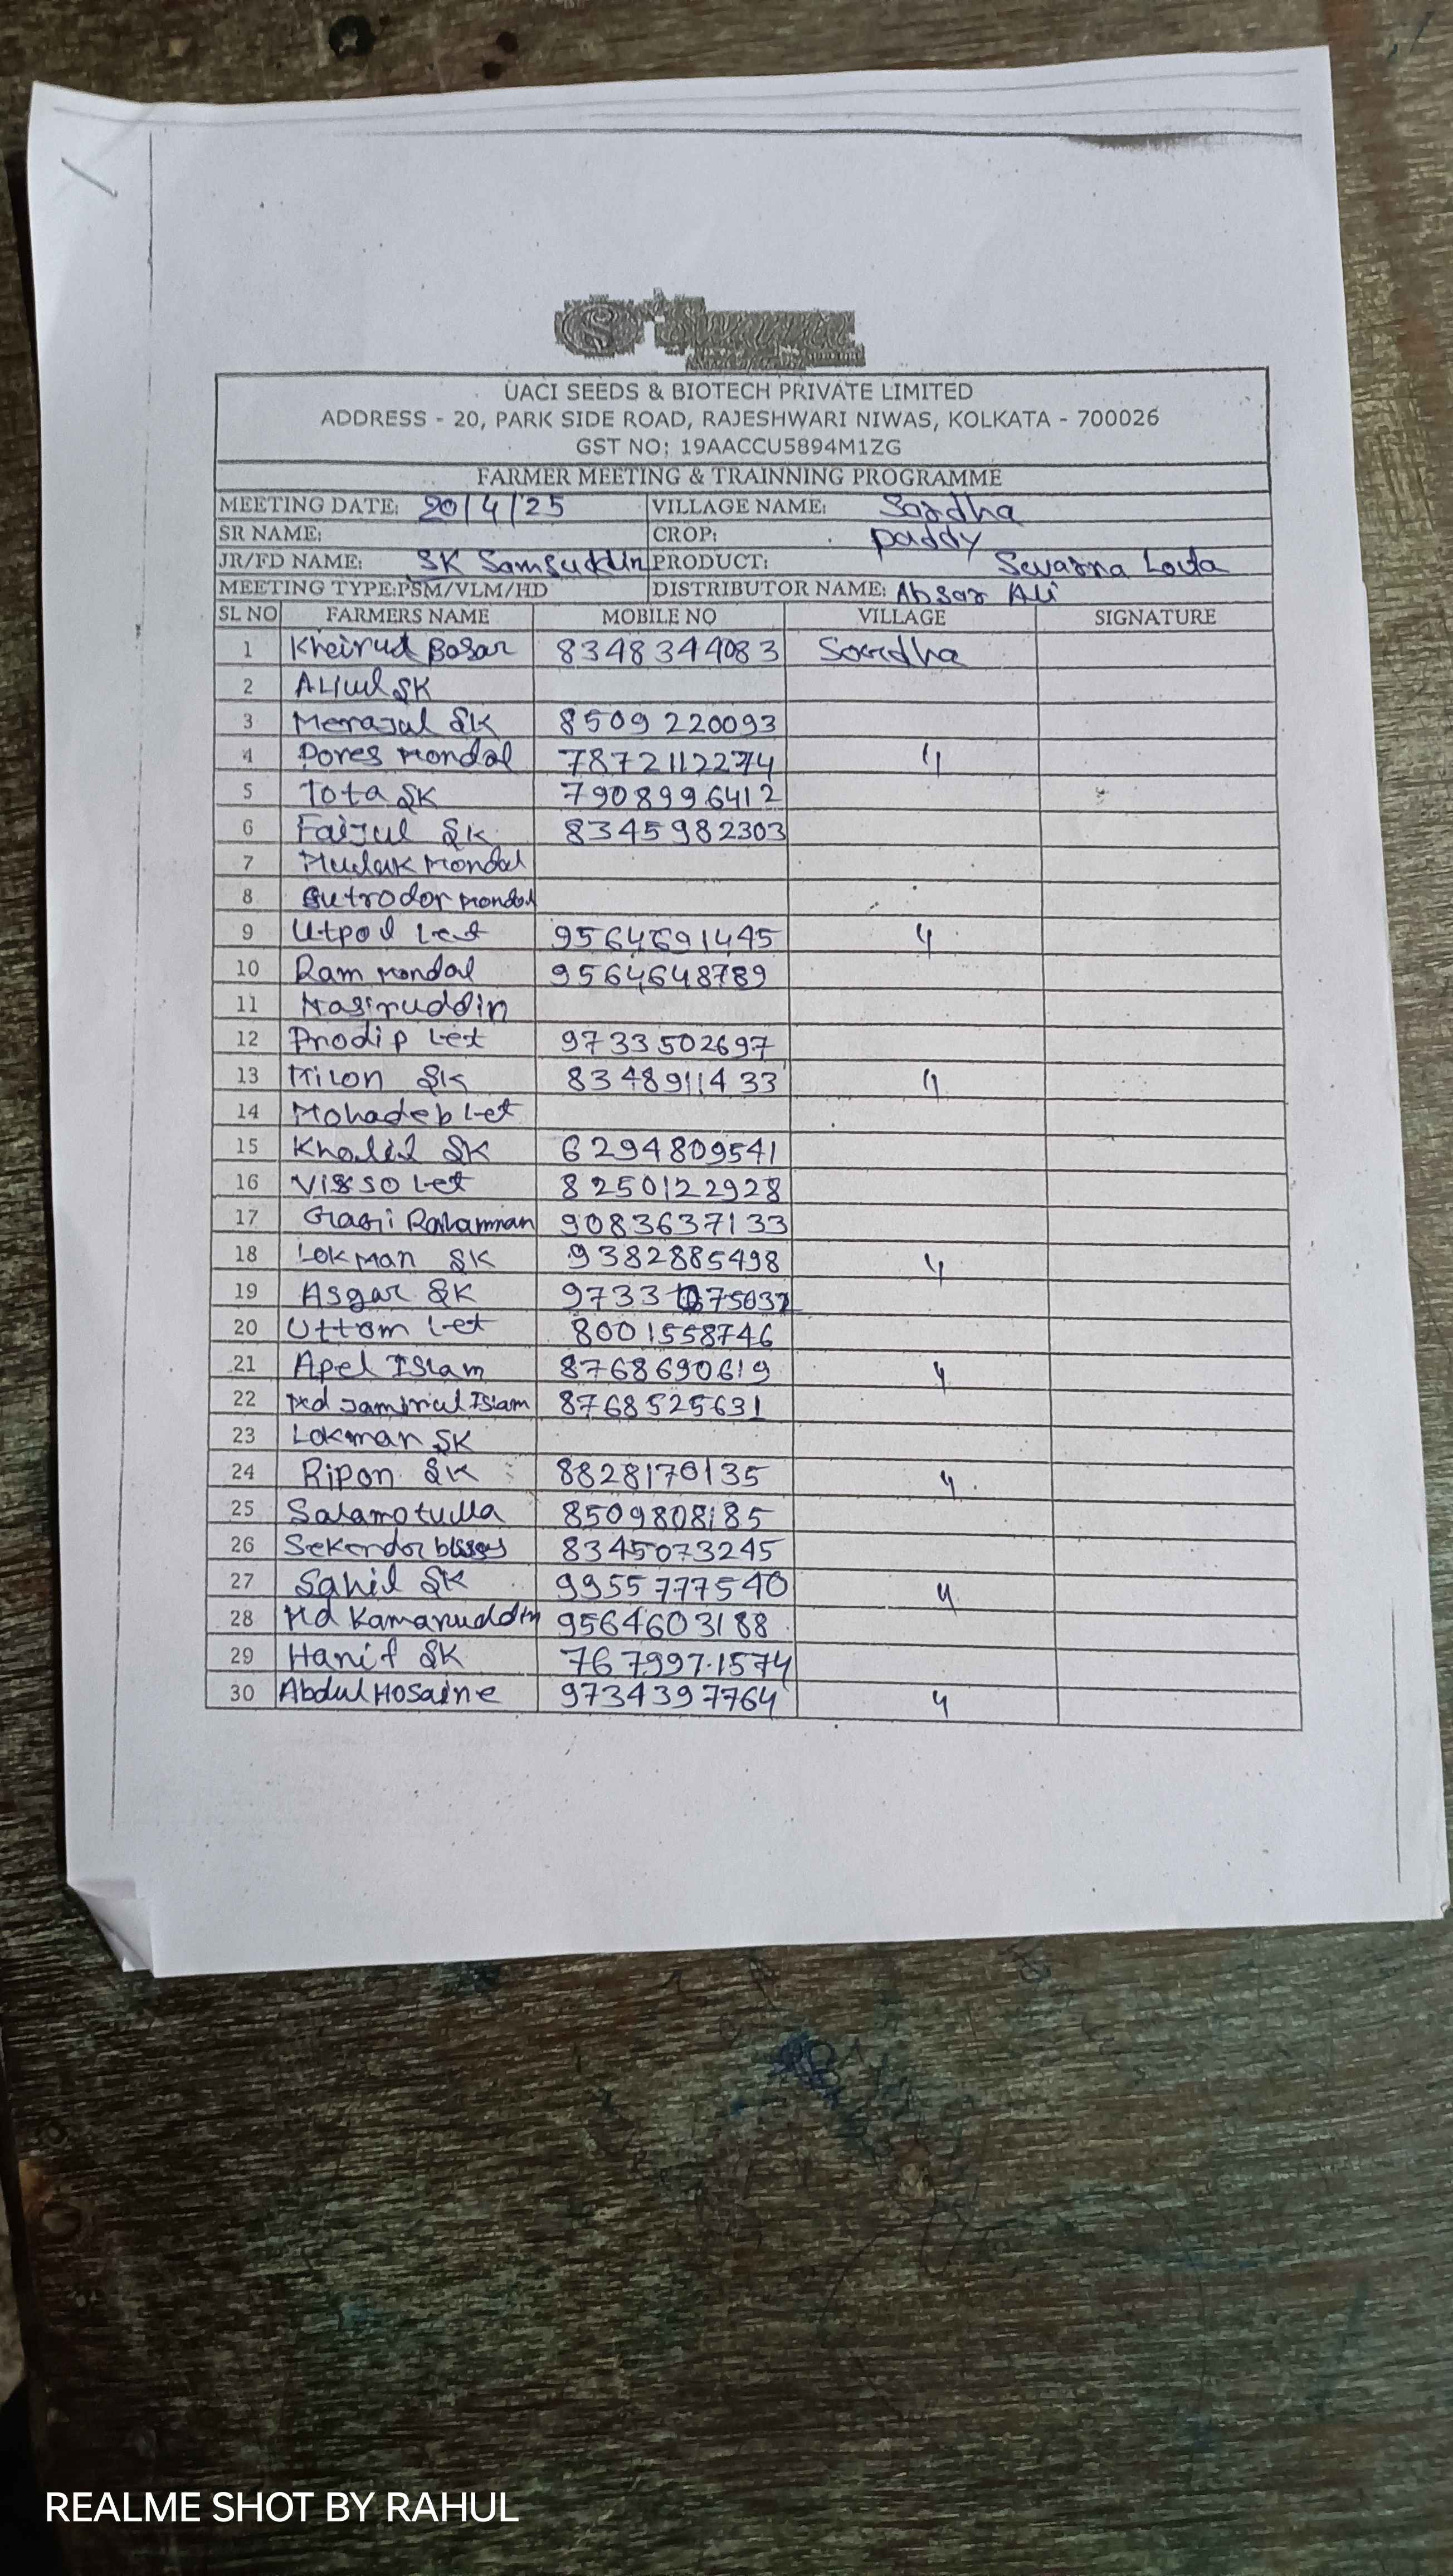 S
UACI SEEDS & BIOTECH PRIVATE LIMITED
ADDRESS - 20, PARK SIDE ROAD, RAJESHWARI NIWAS, KOLKATA - 700026
GST NO: 19AACCU5894M1ZG
FARMER MEETING & TRAINNING PROGRAMME
MEETING DATE: 20/4/25 VILLAGE NAME: Sardha
SR NAME: CROP: paddy
JR/FD NAME: SK Samsuddin PRODUCT: Swarna Lota
MEETING TYPE:PSM/VLM/HD DISTRIBUTOR NAME: Absar Ali
SL NO FARMERS NAME MOBILE NO VILLAGE SIGNATURE
1 Kheirud Basar 8348344083 Sardha
2 SK
3 Merajul SK 8509220093
4 Pores Mondal 7872112274 "
5 Tota SK 7908996412
6 Faijul SK 8345982303
7 Mondal
8 Mondal
9 Utpol Let 9564691445 "
10 Ram Mondal 9564648789
11 Nasiruddin
12 Prodip Let 9733502697
13 Milon SK 8348911433 "
14 Mohadeb Let
15 Khalil SK 6294809541
16 Let 8250122928
17 9083637133
18 Lokman SK 9382885498 "
19 Asgar SK
20 Uttom Let 8001558746
21 Apel Islam 8768690619 "
22 Md Islam 8768525631
23 Lokman SK
24 Ripon SK 8828170135 "
25 Salamotulla 8509808185
26 Sekendar 8345073245
27 Sahil SK 9955777540 "
28 Md Kamaruddin 9564603188
29 Hanif SK 7679971574
30 Abdul Hosaine 9734397764 "
REALME SHOT BY RAHUL